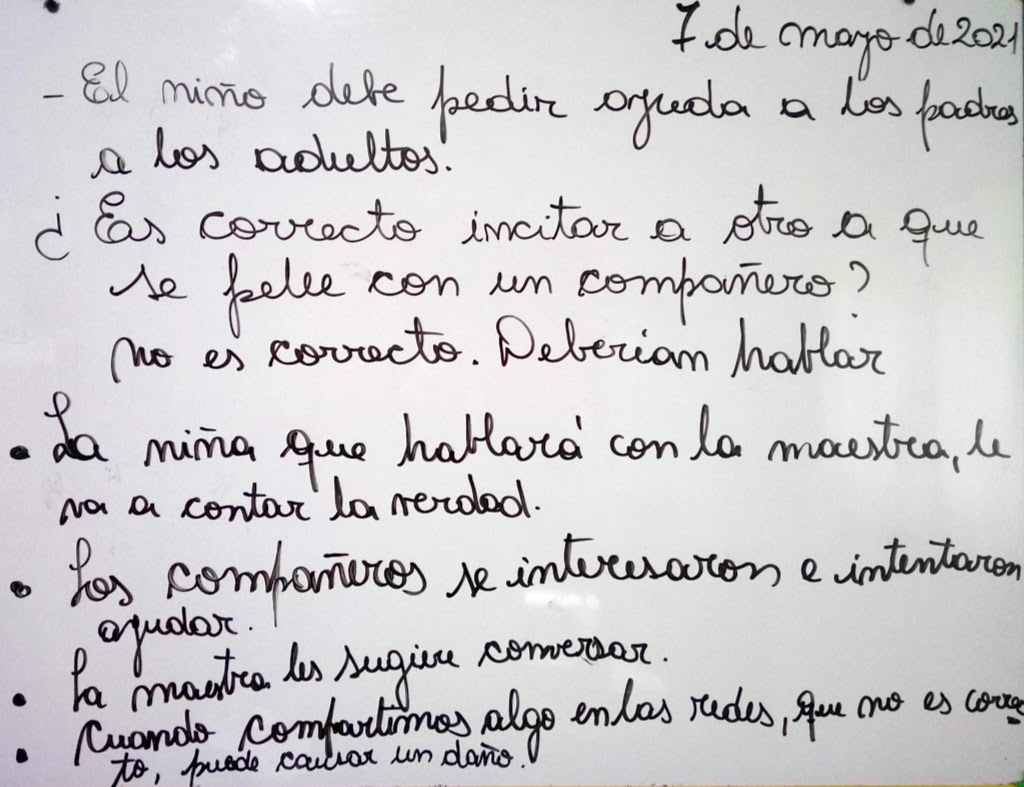 7 de mayo de 2021
- El niño debe pedir ayuda a los padres
a los adultos.
¿ Es correcto incitar a otro a que
se pelee con un compañero?
No es correcto. Deberian hablar
• La niña que hablará con la maestra, le
va a contar la verdad.
• Los compañeros se interesaron e intentaron
ayudar.
• La maestra les sugiere conversar.
• Cuando compartimos algo en las redes, que no es correc
to, puede causar un daño.